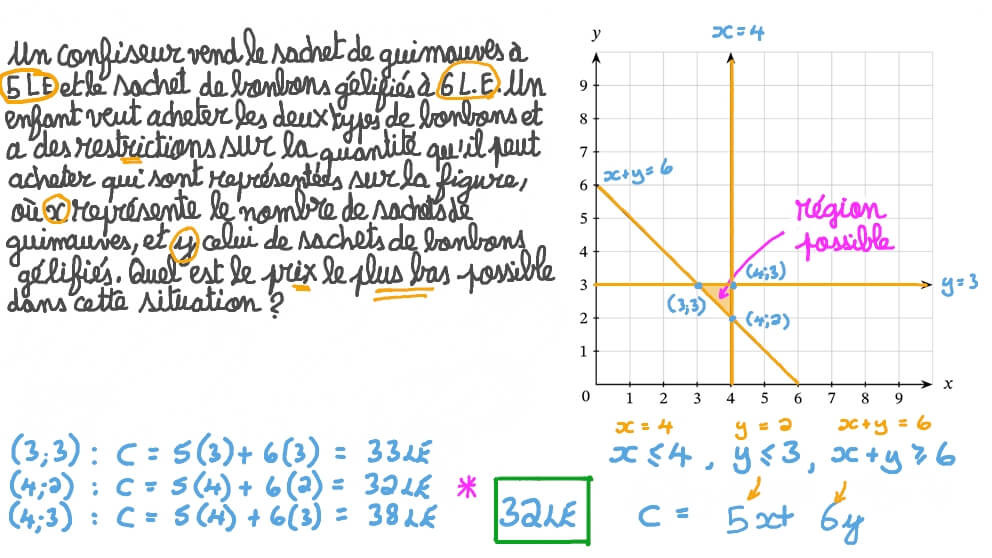 Un confiseur vend le sachet de guimauves à
5 LE et le sachet de bonbons gélifiés à 6 L.E. Un
enfant veut acheter les deux types de bonbons et
a des restrictions sur la quantité qu'il peut
acheter qui sont représentées sur la figure,
où x représente le nombre de sachets de
guimauves, et y celui de sachets de bonbons
gélifiés. Quel est le prix le plus bas possible
dans cette situation ?
x=4
y
9
8
7
6
5
4
3
2
1
0
1 2 3 4 5 6 7 8 9
x
x+y=6
région
possible
(4;3)
(3;3)
(4;2)
y=3
x = 4 y = 2 x+y = 6
x ≤ 4 , y ≤ 3 , x+y ≥ 6
C = 5x+ 6y
(3;3) : C = 5(3)+ 6(3) = 33LE
(4;2) : C = 5(4) + 6(2) = 32LE *
(4;3) : C = 5(4) + 6(3) = 38LE
32LE